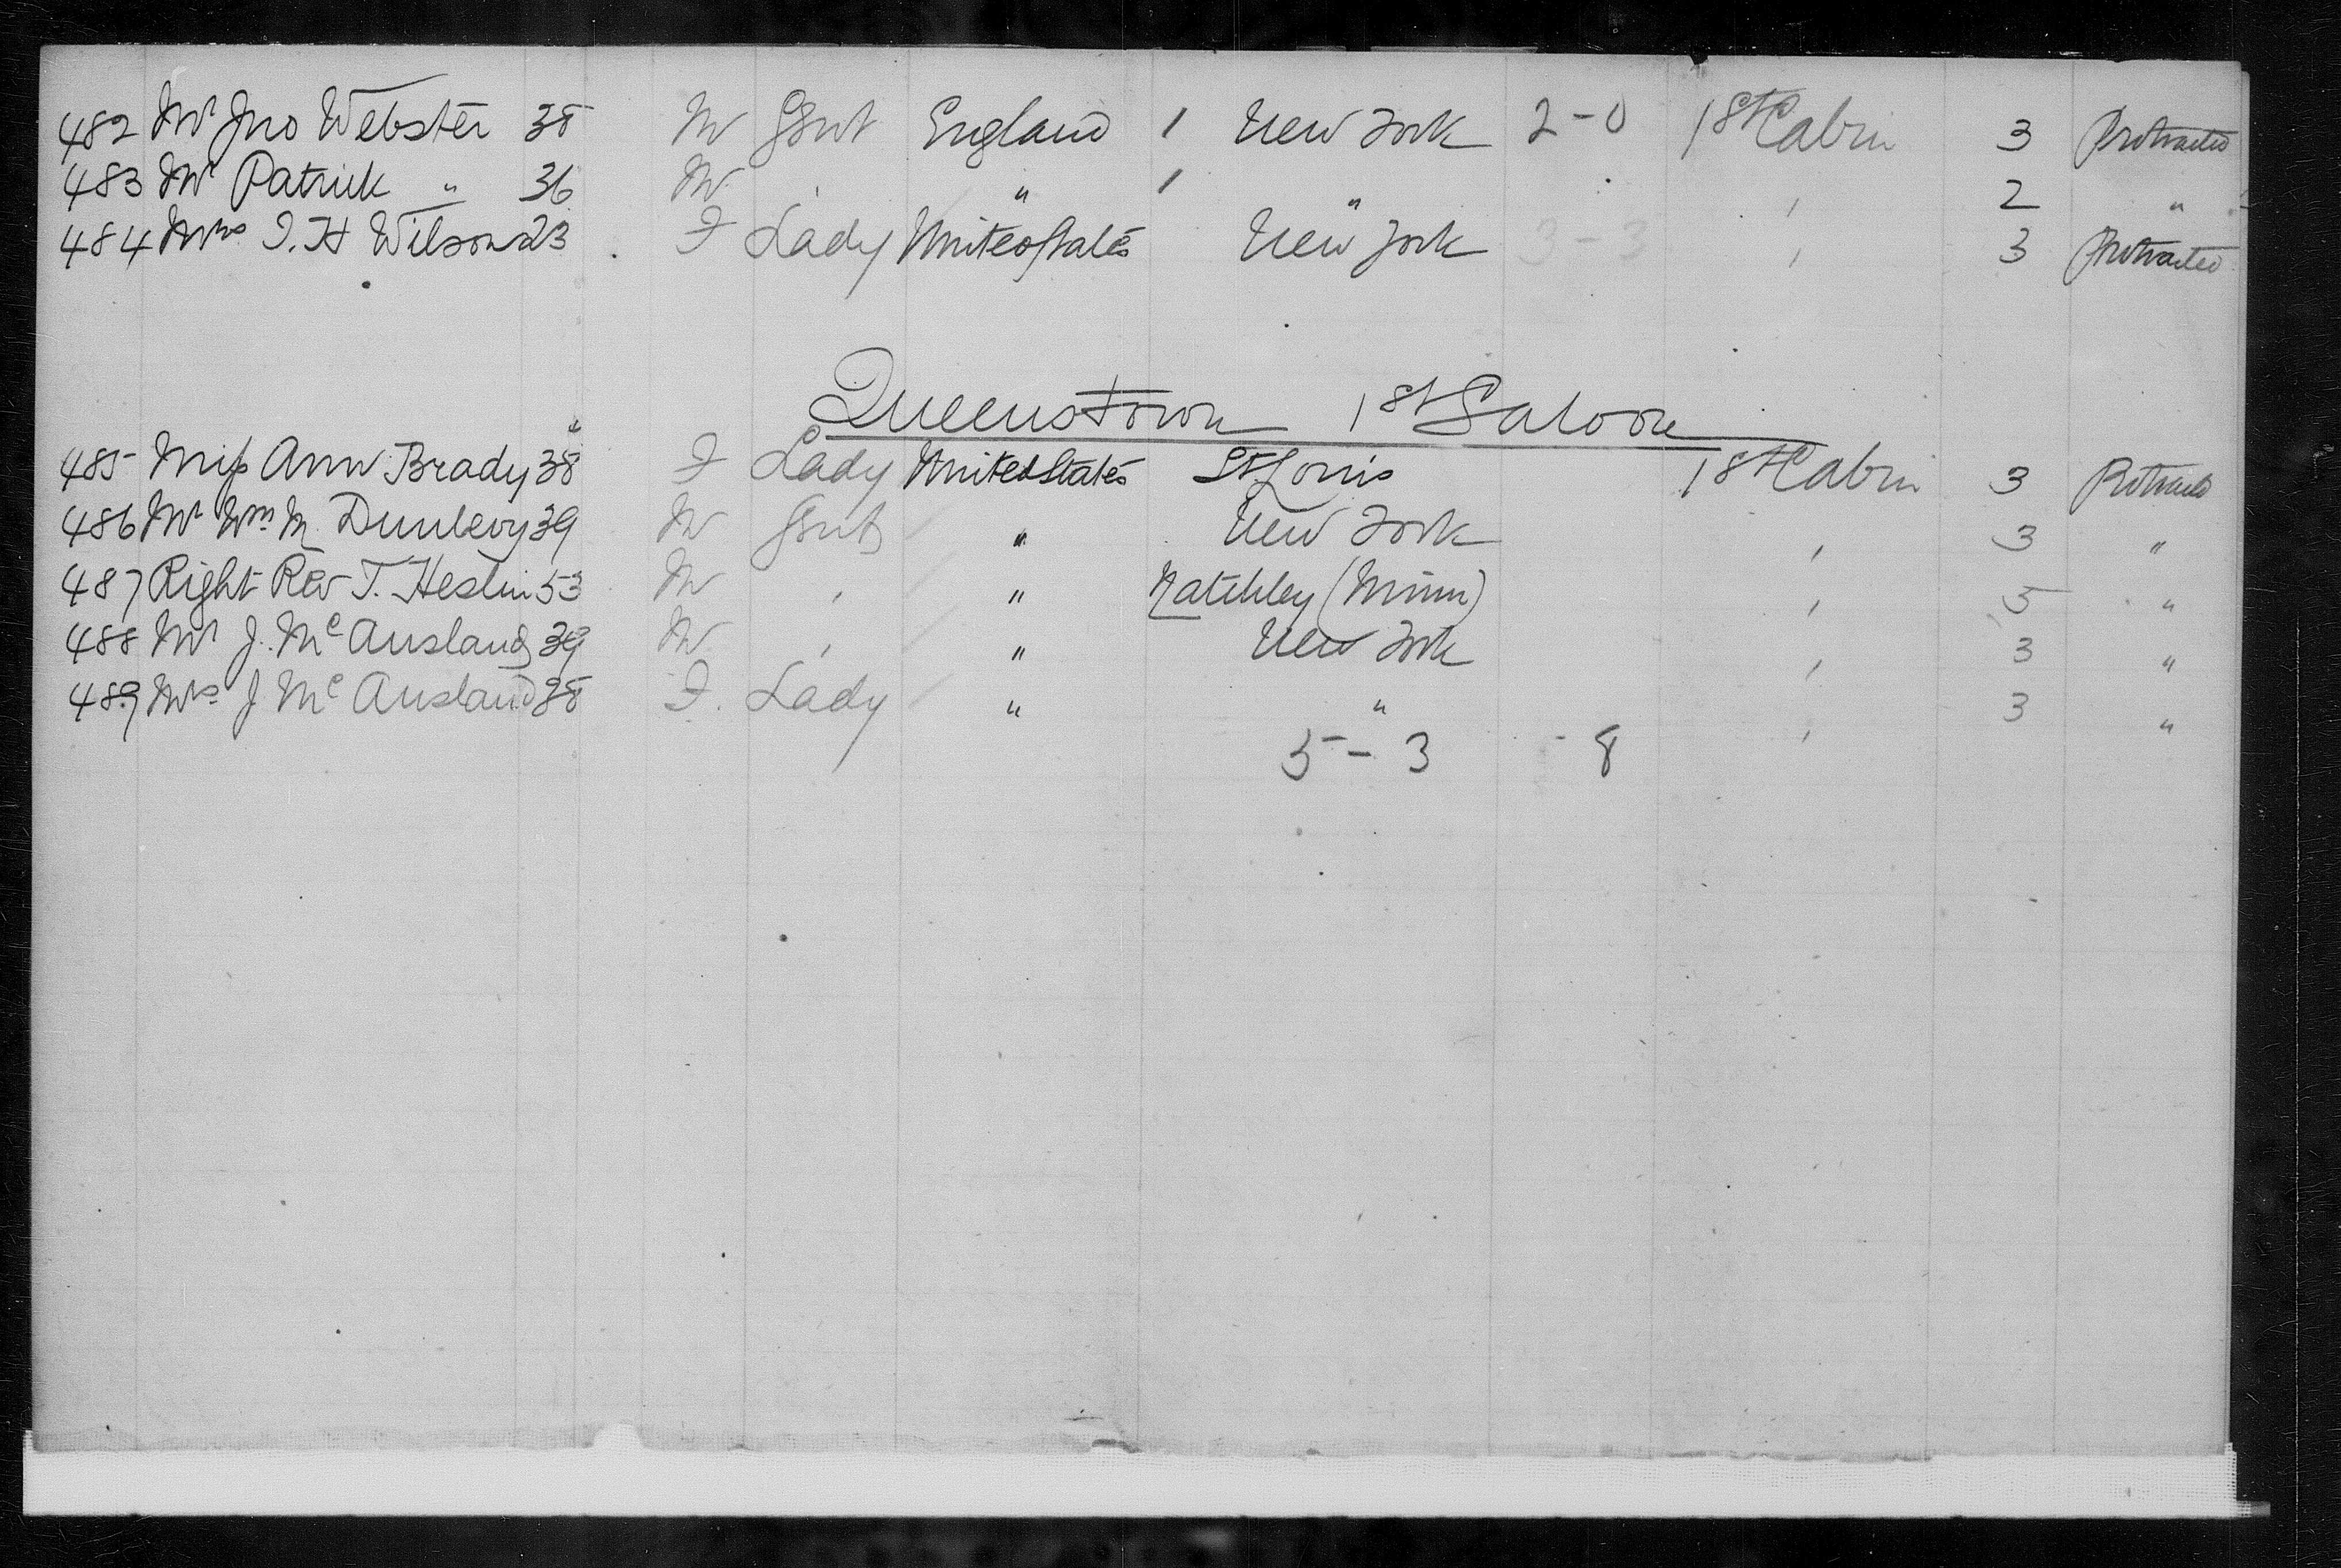 482 Mr Jno Webster 38 M Gent England / New York 2-0 1st Cabin 3 Protracted
483 Mr Patrick " 36 M ' " / " ' 2 "
484 Mrs I. H Wilson 23 F Lady United States New York 3-3 ' 3 Protracted
Queenstown 1st Saloon
485 Miss Ann Brady 38 F Lady United States St Louis 1st Cabin 3
486 Mr Wm M Dunlevy 39 M Gent " New York ' 3 "
487 Right Rev T. Heslin 53 M ' " Natchley (Minn) ' 5 "
488 Mr J. McAusland 39 M ' " New York ' 3 "
489 Mrs J McAusland 38 F. Lady " " ' 3 "
5-3 8